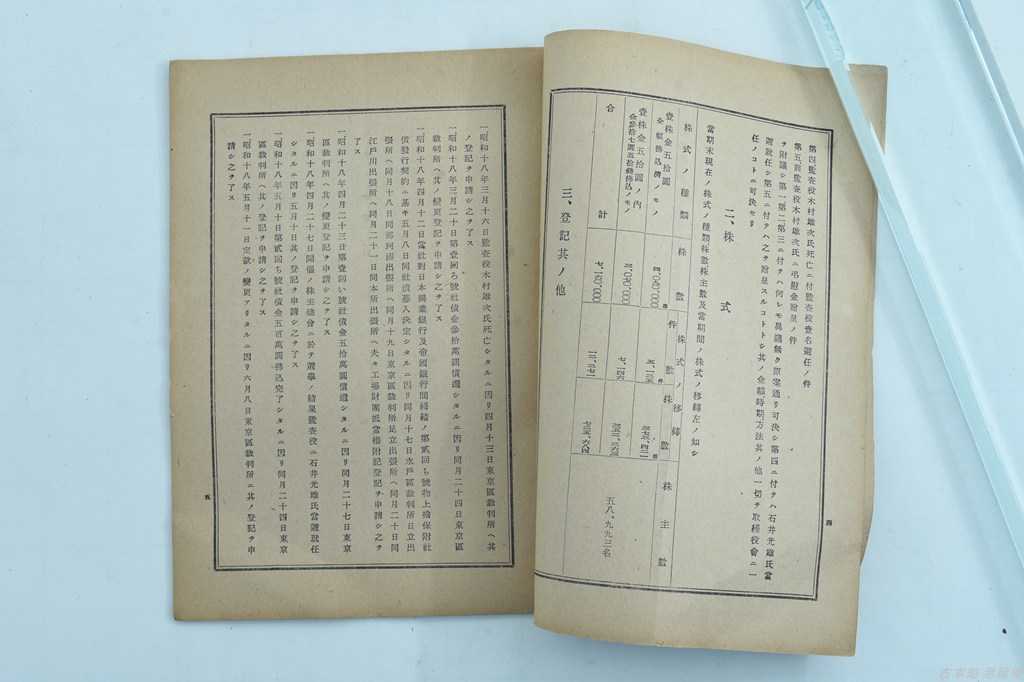 第四監査役木村雄次氏死亡ニ付監査役壹名選任ノ件
第五前監査役木村雄次氏ニ弔慰金贈呈ノ件
ヲ附議シ第一第二第三ニ付テハ何レモ異議無ク原案通リ可決シ第四ニ付テハ石井光雄氏當
選就任シ第五ニ付テハ之ヲ贈呈スルコトトシ其ノ金額時期方法其ノ他一切ヲ取締役會ニ一
任ノコトニ可決セリ
二、株式
當期末現在ノ株式ノ種類株數株主數及當期間ノ株式ノ移轉左ノ如シ
株式ノ種類 株數 株式ノ移轉 件數 株數 株主數
壹株金五拾圓
全額拂込濟ノモノ
壹株金五拾圓ノ內
金參拾七圓五拾錢拂込ノモノ
合計
五八、九九三名
三、登記其ノ他
四
一昭和十八年三月十六日監査役木村雄次氏死亡シタルニ因リ四月十三日東京區裁判所ヘ其
ノ登記ヲ申請シ之ヲ了ス
一昭和十八年三月二十日第壹回ろ號社債金參拾萬圓償還シタルニ因リ同月二十四日東京區
裁判所ヘ其ノ變更登記ヲ申請シ之ヲ了ス
一昭和十八年四月十二日當社對日本興業銀行及帝國銀行間締結ノ第貳回ち號物上擔保附社
債發行契約ニ基キ五月八日同社債募入決定シタルニ因リ同月十七日水戶區裁判所日立出
張所ヘ同月十八日同那珂湊出張所ヘ同月十九日東京區裁判所足立出張所ヘ同月二十日同
江戶川出張所ヘ同月二十一日同本所出張所ヘ夫々工場財團抵當權附記登記ヲ申請シ之ヲ
了ス
一昭和十八年四月二十三日第壹回い號社債金五拾萬圓償還シタルニ因リ同月二十七日東京
區裁判所ヘ其ノ變更登記ヲ申請シ之ヲ了ス
一昭和十八年四月二十七日開催ノ株主總會ニ於テ選擧ノ結果監査役ニ石井光雄氏當選就任
シタルニ因リ五月十日其ノ登記ヲ申請シ之ヲ了ス
一昭和十八年五月十日第貳回ち號社債金五百萬圓拂込完了シタルニ因リ同月二十四日東京
區裁判所ヘ其ノ登記ヲ申請シ之ヲ了ス
一昭和十八年五月十一日定款ノ變更アリタルニ因リ六月八日東京區裁判所ニ其ノ登記ヲ申
請シ之ヲ了ス
五